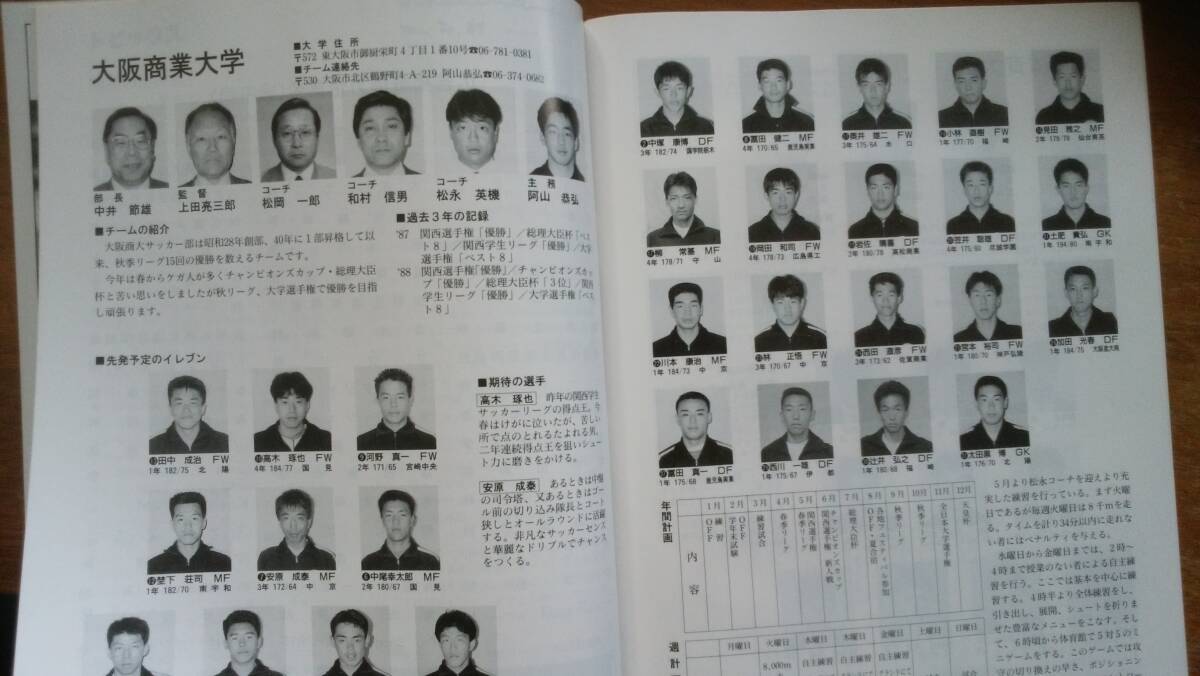 大阪商業大学
■大学住所
〒572 東大阪市御厨栄町4丁目1番10号☎06-781-0381
■チーム連絡先
〒530 大阪市北区鶴野町4-A-219 阿山恭弘☎06-374-0682
部長
中井 節雄
監督
上田亮三郎
コーチ
松岡 一郎
コーチ
和村 信男
コーチ
松永 英機
主務
阿山 恭弘
■チームの紹介
大阪商大サッカー部は昭和28年創部、40年に1部昇格して以
来、秋季リーグ15回の優勝を数えるチームです。
今年は春からケガ人が多くチャンピオンズカップ・総理大臣
杯と苦い思いをしましたが秋リーグ、大学選手権で優勝を目指
し頑張ります。
■過去3年の記録
'87 関西選手権「優勝」／総理大臣杯「ベスト
8」／関西学生リーグ「優勝」／大学
選手権「ベスト8」
'88 関西選手権「優勝」／チャンピオンズカッ
プ「優勝」／総理大臣杯「3位」／関西
学生リーグ「優勝」／大学選手権「ベスト
8」
■先発予定のイレブン
田中 成治 FW
1年 182/75 北陽
⑩高木 琢也 FW
4年 184/77 国見
⑨河野 真一 FW
2年 171/65 宮崎中央
埜下 荘司 MF
1年 182/70 南宇和
⑦安原 成泰 MF
3年 172/64 中京
⑥中尾幸太郎 MF
2年 180/67 国見
■期待の選手
高木 琢也 昨年の関西学生
サッカーリーグの得点王。今
春はけがに泣いたが、苦しい
所で点のとれるたよれる男。
二年連続得点王を狙いシュー
ト力に磨きをかける。
安原 成泰 あるときは中盤
の司令塔、又あるときはゴー
ル前の切り込み隊長とコート
狭しとオールラウンドに活躍
する。非凡なサッカーセンス
と華麗なドリブルでチャンス
をつくる。
②中塚 康博 DF
3年 182/74 国学院栃木
⑧富田 健二 MF
4年 170/65 鹿児島実業
奥井 雄二 FW
3年 175/64 水口
小林 直樹 FW
1年 177/70 福崎
見田 雅之 MF
2年 178/78 仙台育英
柳 常基 MF
4年 178/71 守山
岡田 和司 FW
4年 178/73 広島県工
岩佐 DF
2年 180/78 高松商業
笠井 聡雄 DF
4年 175/60 尽誠学園
土肥 貴弘 GK
1年 184/80 南宇和
川本 康治 MF
1年 184/73 中京
林 正悟 FW
3年 170/67 中京
西田 直彦 FW
3年 173/62 佐賀商業
宮本 裕司 FW
1年 180/70 神戸弘陵
加田 光春 DF
1年 184/75
富田 真一 DF
1年 175/68 鹿児島実業
西川 一雄 DF
1年 175/67 伊都
辻井 弘之 DF
1年 180/68 福崎
太田黒 博 GK
1年 176/70 北陽
年間計画
1月 2月 3月 4月 5月 6月 7月 8月 9月 10月 11月 12月
内容
練習OFF
OFF 学年末試験
練習試合
春季リーグ
春季リーグ 関西選手権
チャンピオンズカップ 関西選手権 新人戦
総理大臣杯
各地フェスティバル参加 OFF・夏合宿
秋季リーグ
秋季リーグ
全日本大学選手権
天皇杯
週計
月曜日 火曜日 水曜日 木曜日 金曜日 土曜日 日曜日
8,000m 自主練習 自主練習 自主練習
5月より松永コーチを迎えより充
実した練習を行っている。まず火曜
日であるが毎週火曜日は8千mを走
る。タイムを計り34分以内に走れな
い者にはペナルティを与える。
水曜日から金曜日までは、2時〜
4時まで授業のない者による自主練
習を行う。ここでは基本を中心に練
習する。4時半より全体練習をし、
引き出し、展開、シュートを折りま
ぜた豊富なメニューをこなす。そし
て、6時頃から体育館で5対5のミ
ニゲームをする。このゲームでは攻
守の切り換えの早さ、ポジショニン